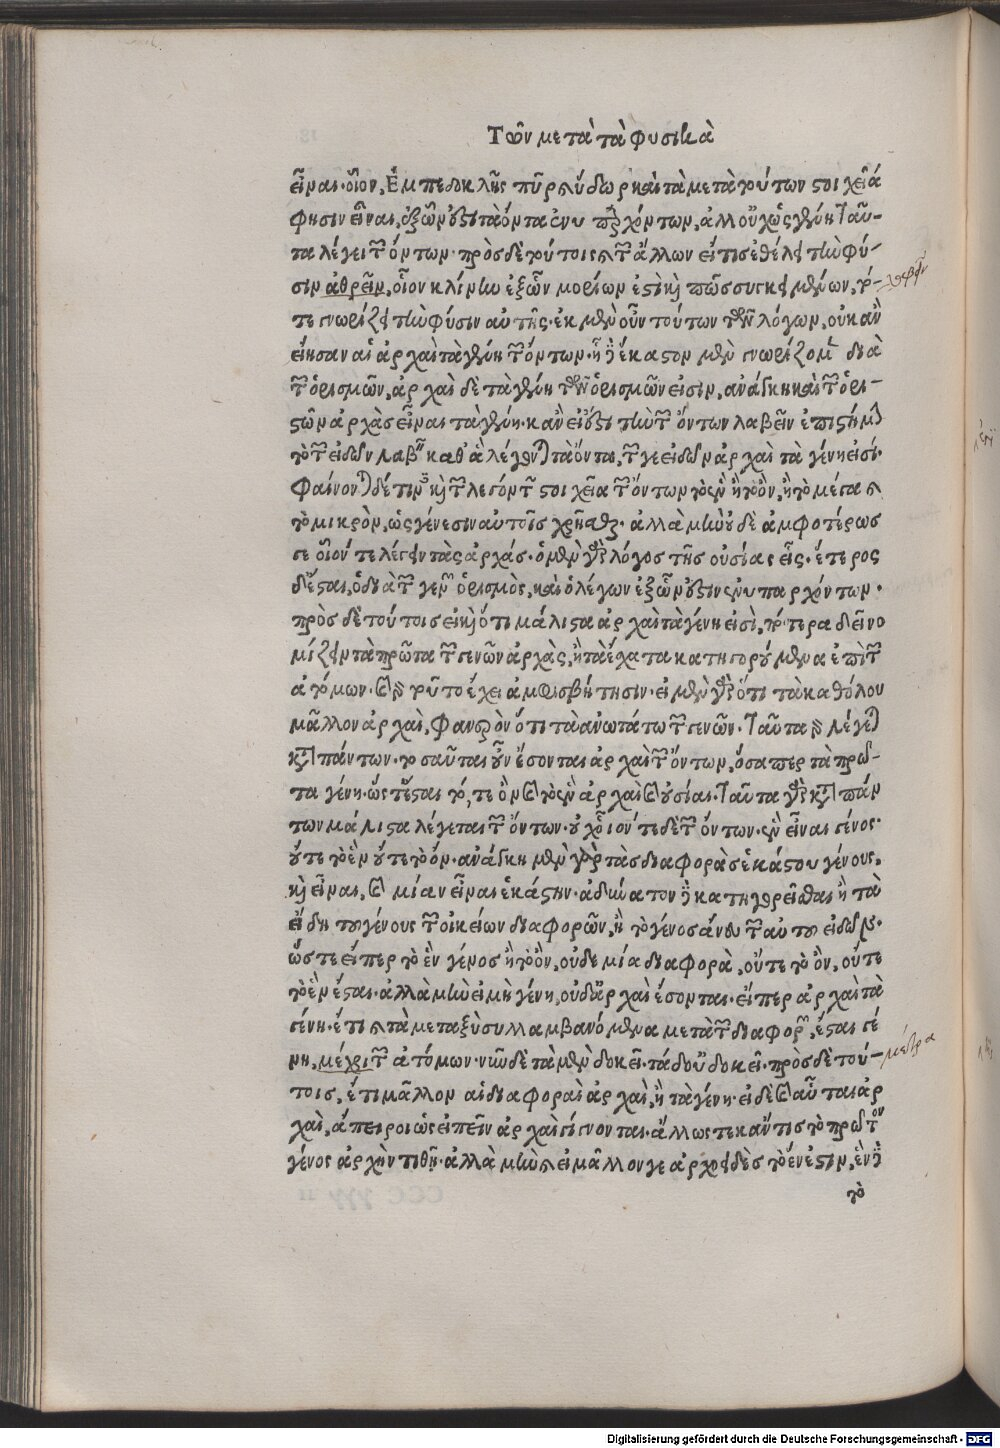 Τῶν μετὰ τὰ φυσικὰ
εἶναι. οἷον, Ἐμπεδοκλῆς πῦρ καὶ ὕδωρ καὶ τὰ μετὰ τούτων στοιχεῖά
φησιν εἶναι, ἐξ ὧν ἐστὶ τὰ ὄντα ἐνυπαρχόντων, ἀλλ οὐχ ὡς γένη ταῦ-
τα λέγει τῶν ὄντων. πρὸς δὲ τούτοις καὶ τῶν ἄλλων εἴ τις ἐθέλει τὴν φύ-
σιν ἀθρεῖν, οἷον κλίνην ἐξ ὧν μορίων ἐστὶ καὶ πῶς συγκειμένων, τό-
τε γνωρίζει τὴν φύσιν αὐτῆς. ἐκ μὲν οὖν τούτων τῶν λόγων, οὐκ ἂν
εἴησαν αἱ ἀρχαὶ τὰ γένη τῶν ὄντων. εἰ δὲ ἕκαστον μὲν γνωρίζομεν διὰ
τῶν ὁρισμῶν, ἀρχαὶ δὲ τὰ γένη τῶν ὁρισμῶν εἰσιν, ἀνάγκη καὶ τῶν ὁρι-
στῶν ἀρχὰς εἶναι τὰ γένη. κἂν εἰ ἐστὶ τὴν τῶν ὄντων λαβεῖν ἐπιστήμην
τὸ τῶν εἰδῶν λαβεῖν καθ ἃ λέγονται τὰ ὄντα, τῶν γε εἰδῶν ἀρχαὶ τὰ γένη εἰσί.
Φαίνονται δέ τινες καὶ τῶν λεγόντων στοιχεῖα τῶν ὄντων τὸ ἓν ἢ τὸ ὂν, ἢ τὸ μέγα καὶ
τὸ μικρὸν, ὡς γένεσιν αὐτοῖς χρῆσθαι. ἀλλὰ μὴν οὐδὲ ἀμφοτέρως
γε οἷόν τε λέγειν τὰς ἀρχάς. ὁ μὲν γὰρ λόγος τῆς οὐσίας εἷς. ἕτερος
δ ἔσται, ὁ διὰ τῶν γενῶν ὁρισμὸς, καὶ ὁ λέγων ἐξ ὧν ἐστὶν ἐνυπαρχόντων.
πρὸς δὲ τούτοις εἰ καὶ ὅτι μάλιστα ἀρχαὶ τὰ γένη εἰσὶ, πότερα δεῖ νο
μίζειν τὰ πρῶτα τῶν γενῶν ἀρχὰς, ἢ τὰ ἔσχατα κατηγορούμενα ἐπὶ τῶν
ἀτόμων. καὶ γὰρ τοῦτο ἔχει ἀμφισβήτησιν. εἰ μὲν γὰρ ὅτι τὰ καθόλου
μᾶλλον ἀρχαὶ, φανερὸν ὅτι τὰ ἀνωτάτω τῶν γενῶν. ταῦτα γὰρ λέγεται
κατὰ πάντων. τοσαῦται οὖν ἔσονται ἀρχαὶ τῶν ὄντων, ὅσα περ τὰ πρῶ-
τα γένη. ὥστ ἔσται τό, τε ὂν καὶ τὸ ἓν ἀρχαὶ καὶ οὐσίαι. ταῦτα γὰρ κατὰ πάν
των μάλιστα λέγεται τῶν ὄντων. οὐχ οἷόν τε δὲ τῶν ὄντων. ἓν εἶναι γένος.
οὔτε τὸ ἓν οὔτε τὸ ὄν. ἀνάγκη μὲν γὰρ τὰς διαφορὰς ἑκάστου γένους,
καὶ εἶναι, καὶ μίαν εἶναι ἑκάστην. ἀδύνατον δὲ κατηγορεῖσθαι ἢ τὰ
εἴδη τοῦ γένους τῶν οἰκείων διαφορῶν, ἢ τὸ γένος ἄνευ τῶν αὐτοῦ εἰδῶν.
ὥστε εἴπερ τὸ ἓν γένος ἢ τὸ ὂν, οὐδεμία διαφορὰ, οὔτε τὸ ὂν, οὔτε
τὸ ἓν ἔσται. ἀλλὰ μὴν εἰ μὴ γένη, οὐδ ἀρχαὶ ἔσονται. εἴπερ ἀρχαὶ τὰ
γένη. ἔτι καὶ τὰ μεταξὺ συλλαμβανόμενα μετὰ τῶν διαφορῶν, ἔσται γέ
νη, μέχρι τῶν ἀτόμων. νῦν δὲ τὰ μὲν δοκεῖ. τὰ δ οὐ δοκεῖ. πρὸς δὲ τού-
τοις, ἔτι μᾶλλον αἱ διαφοραὶ ἀρχαὶ, ἢ τὰ γένη. εἰ δὲ καὶ αὗται ἀρ
χαὶ, ἄπειροι ὡς εἰπεῖν ἀρχαὶ γίγνονται. ἄλλως τε κἄν τις τὸ πρῶτον
γένος ἀρχὴν τιθῇ. ἀλλὰ μὴν καὶ εἰ μᾶλλόν γε ἀρχοειδὲς τὸ ἕν ἐστιν, ἓν δὲ
τὸ
Digitalisierung gefördert durch die Deutsche Forschungsgemeinschaft - DFG